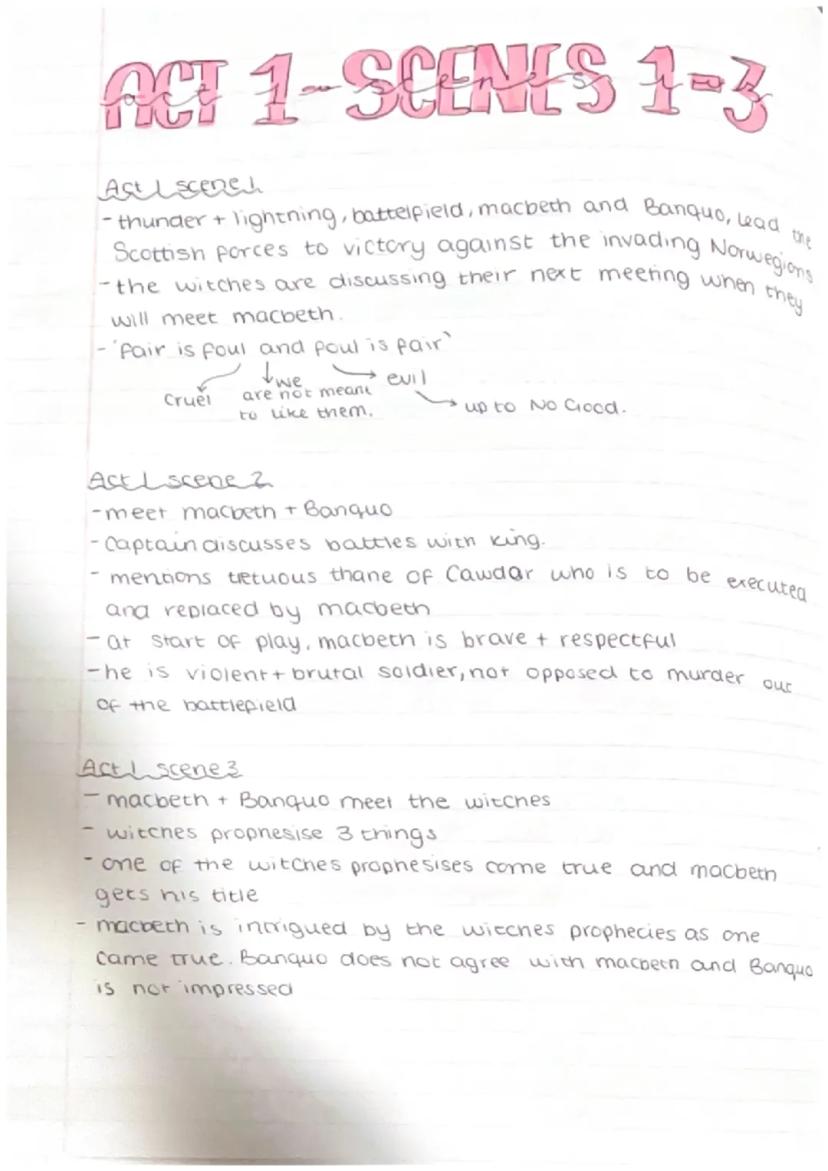 ACT 1-SCENES 1-3
act 1 - scenes 1-3
Act 1 scene 1
- thunder + lightning, battelfield, macbeth and Banquo, lead the
Scottish forces to victory against the invading Norwegions
- the witches are discussing their next meeting when they
will meet macbeth.
- 'fair is foul and foul is fair'
cruel we evil
are not meant
to like them. up to No Good.
Act 1 scene 2
- meet macbeth + Banquo
- Captain discusses battles with king.
- mentions tretuous thane of Cawdor who is to be executed
and replaced by macbeth
- at start of play, macbeth is brave + respectful
- he is violent + brutal soldier, not opposed to murder out
of the battlefield
Act 1 scene 3
- macbeth + Banquo meet the witches
- witches prophesise 3 things
- one of the witches prophesises come true and macbeth
gets his title
- macbeth is intrigued by the witches prophecies as one
came true. Banquo does not agree with macbeth and Banquo
is not impressed